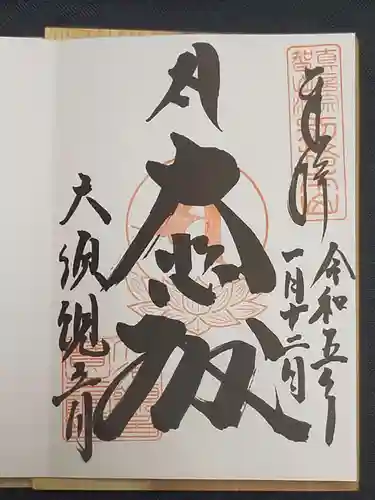 奉拝
令和五年
一月十二日
大悲殿
大須観音